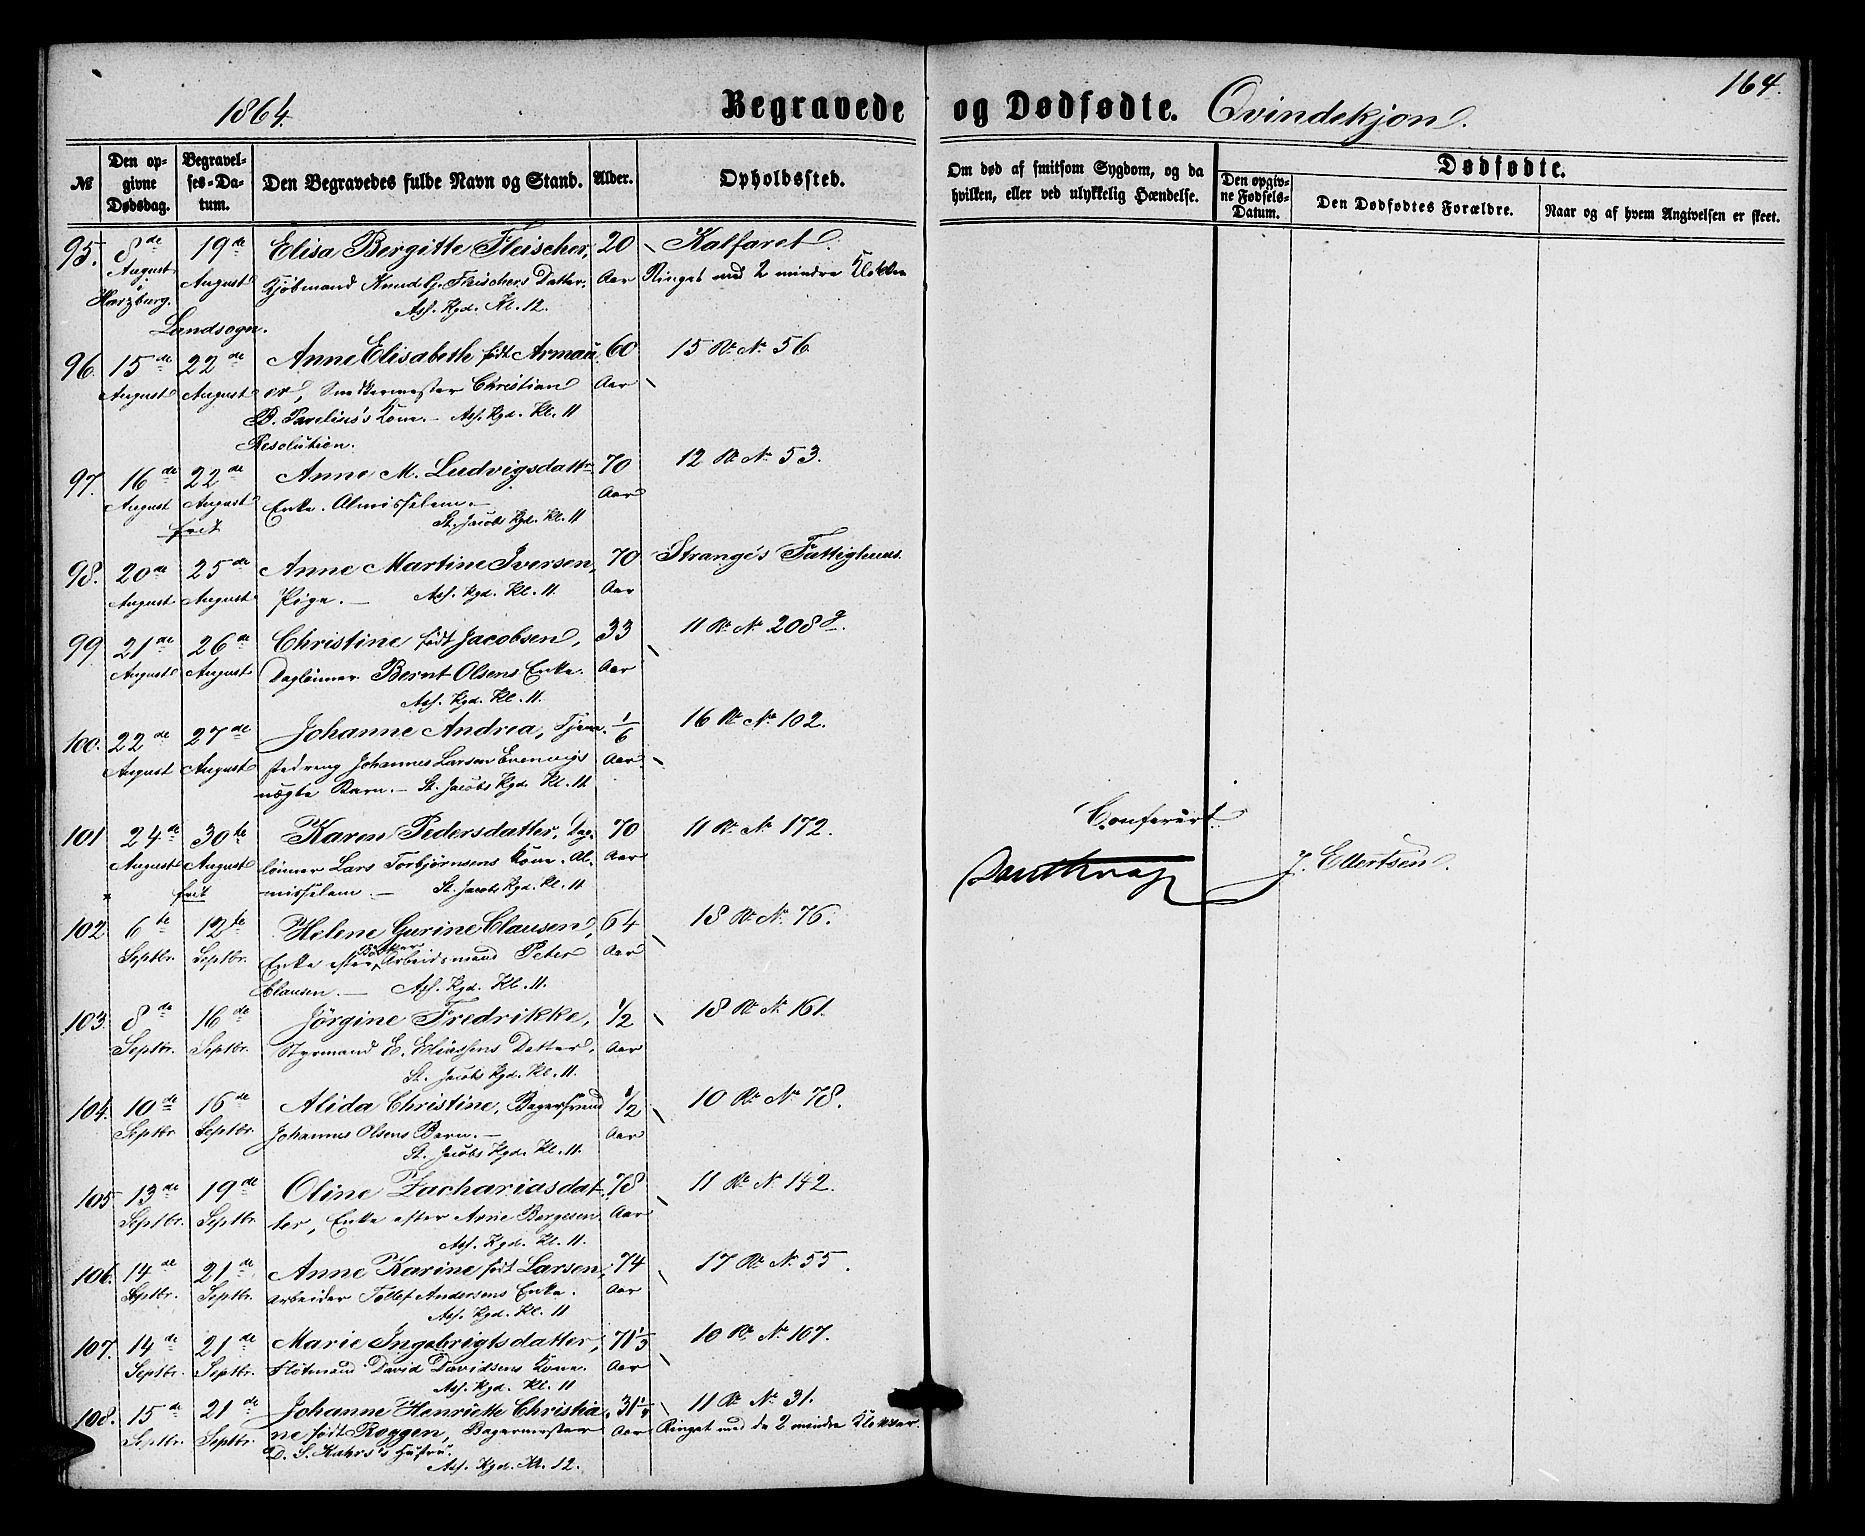 164.
1864.
Begravede og Dødfødte. Qvindekjøn.
№
Den opgivne Dødsdag.
Begravelses-Datum.
Den Begravedes fulde Navn og Stand.
Alder.
Opholdssted.
Om død af smitsom Sygdom, og da hvilken, eller ved ulykkelig Hændelse.
Dødfødte.
Den opgivne Fødsels-Datum.
Den Dødfødtes Forældre.
Naar og af hvem Angivelsen er skeet.
95. 8de 19de Elisa Bergitte Fleischer, 20 Kalfaret.
August i August Kjøbmand Knud G. Fleischers Datter. Aar Ringet med 2 mindre Klokker
Harzburg. Ass. Kgd. Kl. 12.
Landsogn.
96. 15de 22de Anne Elisabeth født Armau 60 15 R. N. 56.
August August er, Snedkermester Christian Aar
B. Pavelius's Kone. — Ass. Kgd. Kl. 11
Resolution.
97. 16de 22de Anne M. Ludvigsdatter 70 12 R. N. 53.
August August Enke. Almisselem. — Aar
frit St. Jacobs Kgd. Kl. 11
98. 20de 25de Anne Martine Iversen, 70 Strange's Fattighuus.
August August Pige. — Ass. Kgd. Kl. 11. Aar
99. 21de 26de Christine født Jacobsen, 33 11 R. N. 208 g.
August August Dagleiner Bernt Olsens Enke. Aar
Ass. Kgd. Kl. 11.
100. 22de 27de Johanne Andrea, Tjene- 1/6 16 R. N. 102.
August August stedreng Johannes Larsen Evenvigs Aar
uægte Barn. — St. Jacobs Kgd. Kl. 11.
101 24de 30te Karen Pedersdatter, Dag- 70 11 R. N. 172.
August August lønner Lars Torbjørnsens Kone. Al- Aar
× frit misselem. — St. Jacobs Kgd. Kl. 11
Confereret.
J. Ellertsen.
102. 6te 12te Helene Gurine Clausen, 64 18 R. N. 76.
Septbr. Septbr. Enke efter Arbeidsmand Peter Aar
Clausen. — Ass. Kgd. Kl. 11.
103. 8de 16de Jørgine Fredrikke, 1/2 18 R. N. 161.
Septbr. Septbr. Styrmand E. Eliassens Datter. Aar
St. Jacobs Kgd. Kl. 11.
104. 10de 16de Alida Christine, Bagersvend 1/2 10 R. N. 78.
Septbr. Septbr. Johannes Olsens Barn. — Aar
St. Jacobs Kgd. Kl. 11.
105 13de 19de Oline Zachariasdat- 78 11 R. N. 142.
Septbr. Septbr. ter, Enke efter Arne Bergesen. Aar
Ass. Kgd. Kl. 11.
106. 14de 21de Anne Karine født Larsen, 74 17 R. N. 55.
Septbr. Septbr. Arbeider Tollef Andersens Enke. Aar
Ass. Kgd. Kl. 11
107. 14de 21de Marie Ingebrigtsdatter, 71 1/3 10 R. N. 107.
Septbr. Septbr. Fløtmand David Davidsens Kone. Aar
Ass. Kgd. Kl. 11
108. 15de 21de Johanne Henriette Christia 31 1/4 11 R. N. 31.
Septbr. Septbr. ne født Roggen, Bagermester Aar Ringet med de 2 mindre Klokker.
D. S. Kahrs's Hustru.
Ass. Kgd. Kl. 12.